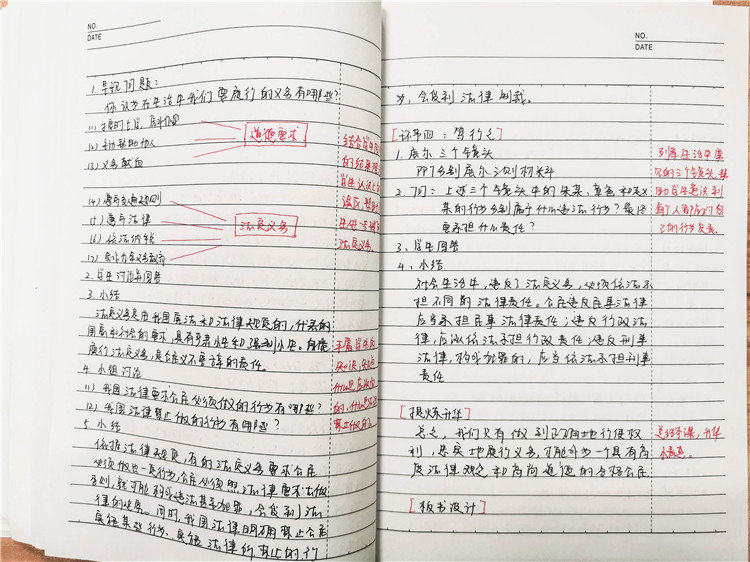 NO.
DATE
1. 导视问题:
你认为在生活中我们要履行的义务有哪些?
(1) 按时上下班
(2) 主动帮助他人
(3) 义务献血
道德要求
(4) 遵守交通规则
(5) 遵守法律
(6) 依法纳税
(7) 适龄儿童义务教育
法定义务
2. 学生讨论并回答
3. 小结
法定义务是由我国宪法和法律规定的,
国家和社会的要求,具有强制性。自觉
履行法定义务,是公民义不容辞的责任。
4. 小组讨论
(1) 我国法律要求公民必须做的行为有哪些?
(2) 我国法律禁止做的行为有哪些?
5. 小结
依据法律规定,有的法定义务要求公民
必须做出一定行为,公民必须照法律要求去做
否则,就可能构成违法甚至犯罪,会受到法
律的惩罚。同时,我国法律明确禁止公民
实施某些行为,实施法律所禁止的行
结合学生
的经典
学生认识上
误区,帮助
法定义务。
NO.
DATE
为,会受到法律制裁。
[环节四:笃行之]
1. 展示三个镜头
PPT分别展示三则材料
2. 问:上述三个镜头中的朱某,章某和赵
某的行为分别属于什么违法行为?最终
要承担什么责任?
3. 学生回答
4. 小结
社会生活中,违反了法定义务,必须依法承
担不同的法律责任。公民违反民事法律
应当承担民事法律责任;违反行政法
律,应当依法承担行政责任;违反刑事
法律,构成犯罪的,应当依法承担刑事
责任
列举生活中
的三个镜头,帮
助学生意识到
每个人都应对自
己的行为负责。
[提炼升华]
总之,我们只有做到正确地行使权
利,忠实地履行义务,才能成为一个具有高
度法律观念和高尚道德的合格公民
总结本课,升华
[板书设计]